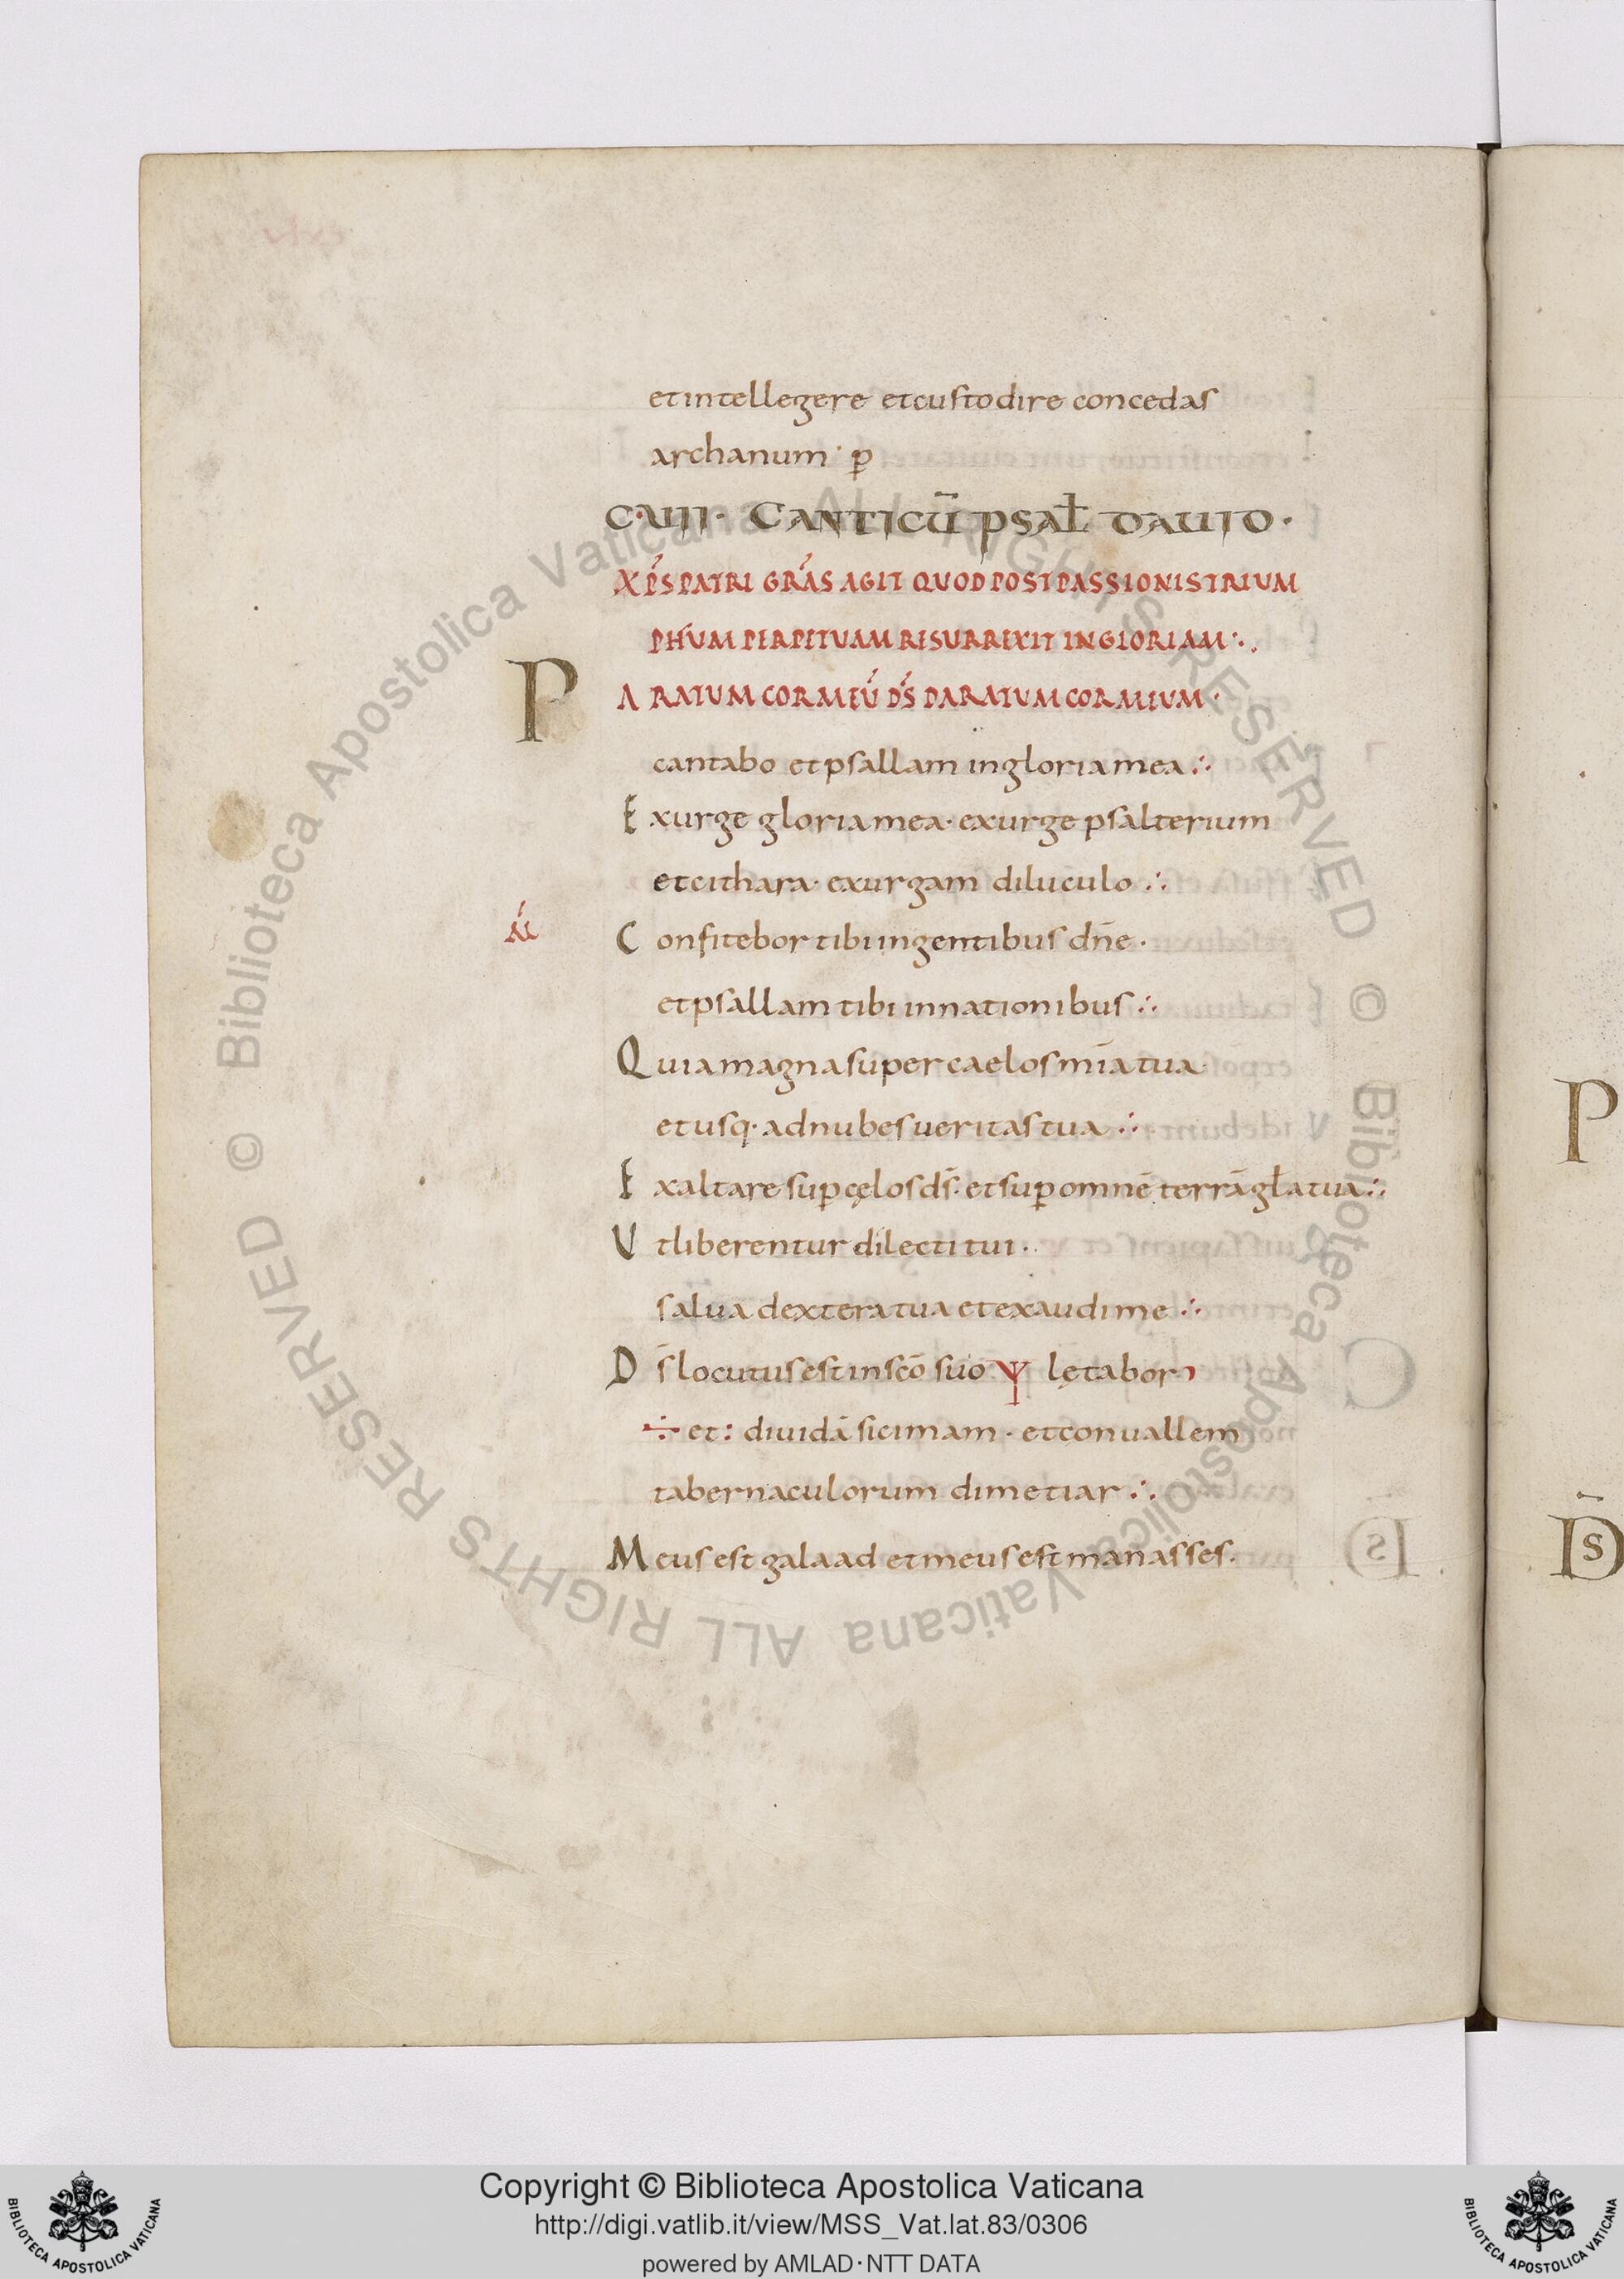 et intellegere et custodire concedas
archanum · ꝑ
C·VII· CANTICU̅ PSAL̅ DAVID ·
XP̅S PATRI GRA̅S AGIT QUOD POST PASSIONIS TRIUM
PHUM PERPETUAM RESURREXIT IN GLORIAM ∴
PARATUM COR MEU̅ D̅S PARATUM COR MEUM ·
cantabo et psallam in gloria mea ∴
Exurge gloria mea · exurge psalterium
et cithara · exurgam diluculo ∴
Confitebor tibi in gentibus dn̅e ·
et psallam tibi in nationibus ∴
Quia magna super caelos mi̅a tua
et usq· ad nubes ueritas tua ∴
Exaltare suꝑ cęlos ds̅ · et suꝑ omne̅ terra̅ gl̅a tua ∴
Ut liberentur dilecti tui ·
salua dextera tua et exaudi me ∴
Ds̅ locutus est in sco̅ suo Ѱ lętabor
÷ et : diuida̅ sicimam · et conuallem
tabernaculorum dimetiar ∴
Meus est galaad et meus est manasses ·
P
D̅S
© Biblioteca Apostolica Vaticana ALL RIGHTS RESERVED © Biblioteca Apostolica Vaticana ALL RIGHTS RESERVED
Copyright © Biblioteca Apostolica Vaticana
http://digi.vatlib.it/view/MSS_Vat.lat.83/0306
powered by AMLAD·NTT DATA
BIBLIOTECA APOSTOLICA VATICANA
BIBLIOTECA APOSTOLICA VATICANA